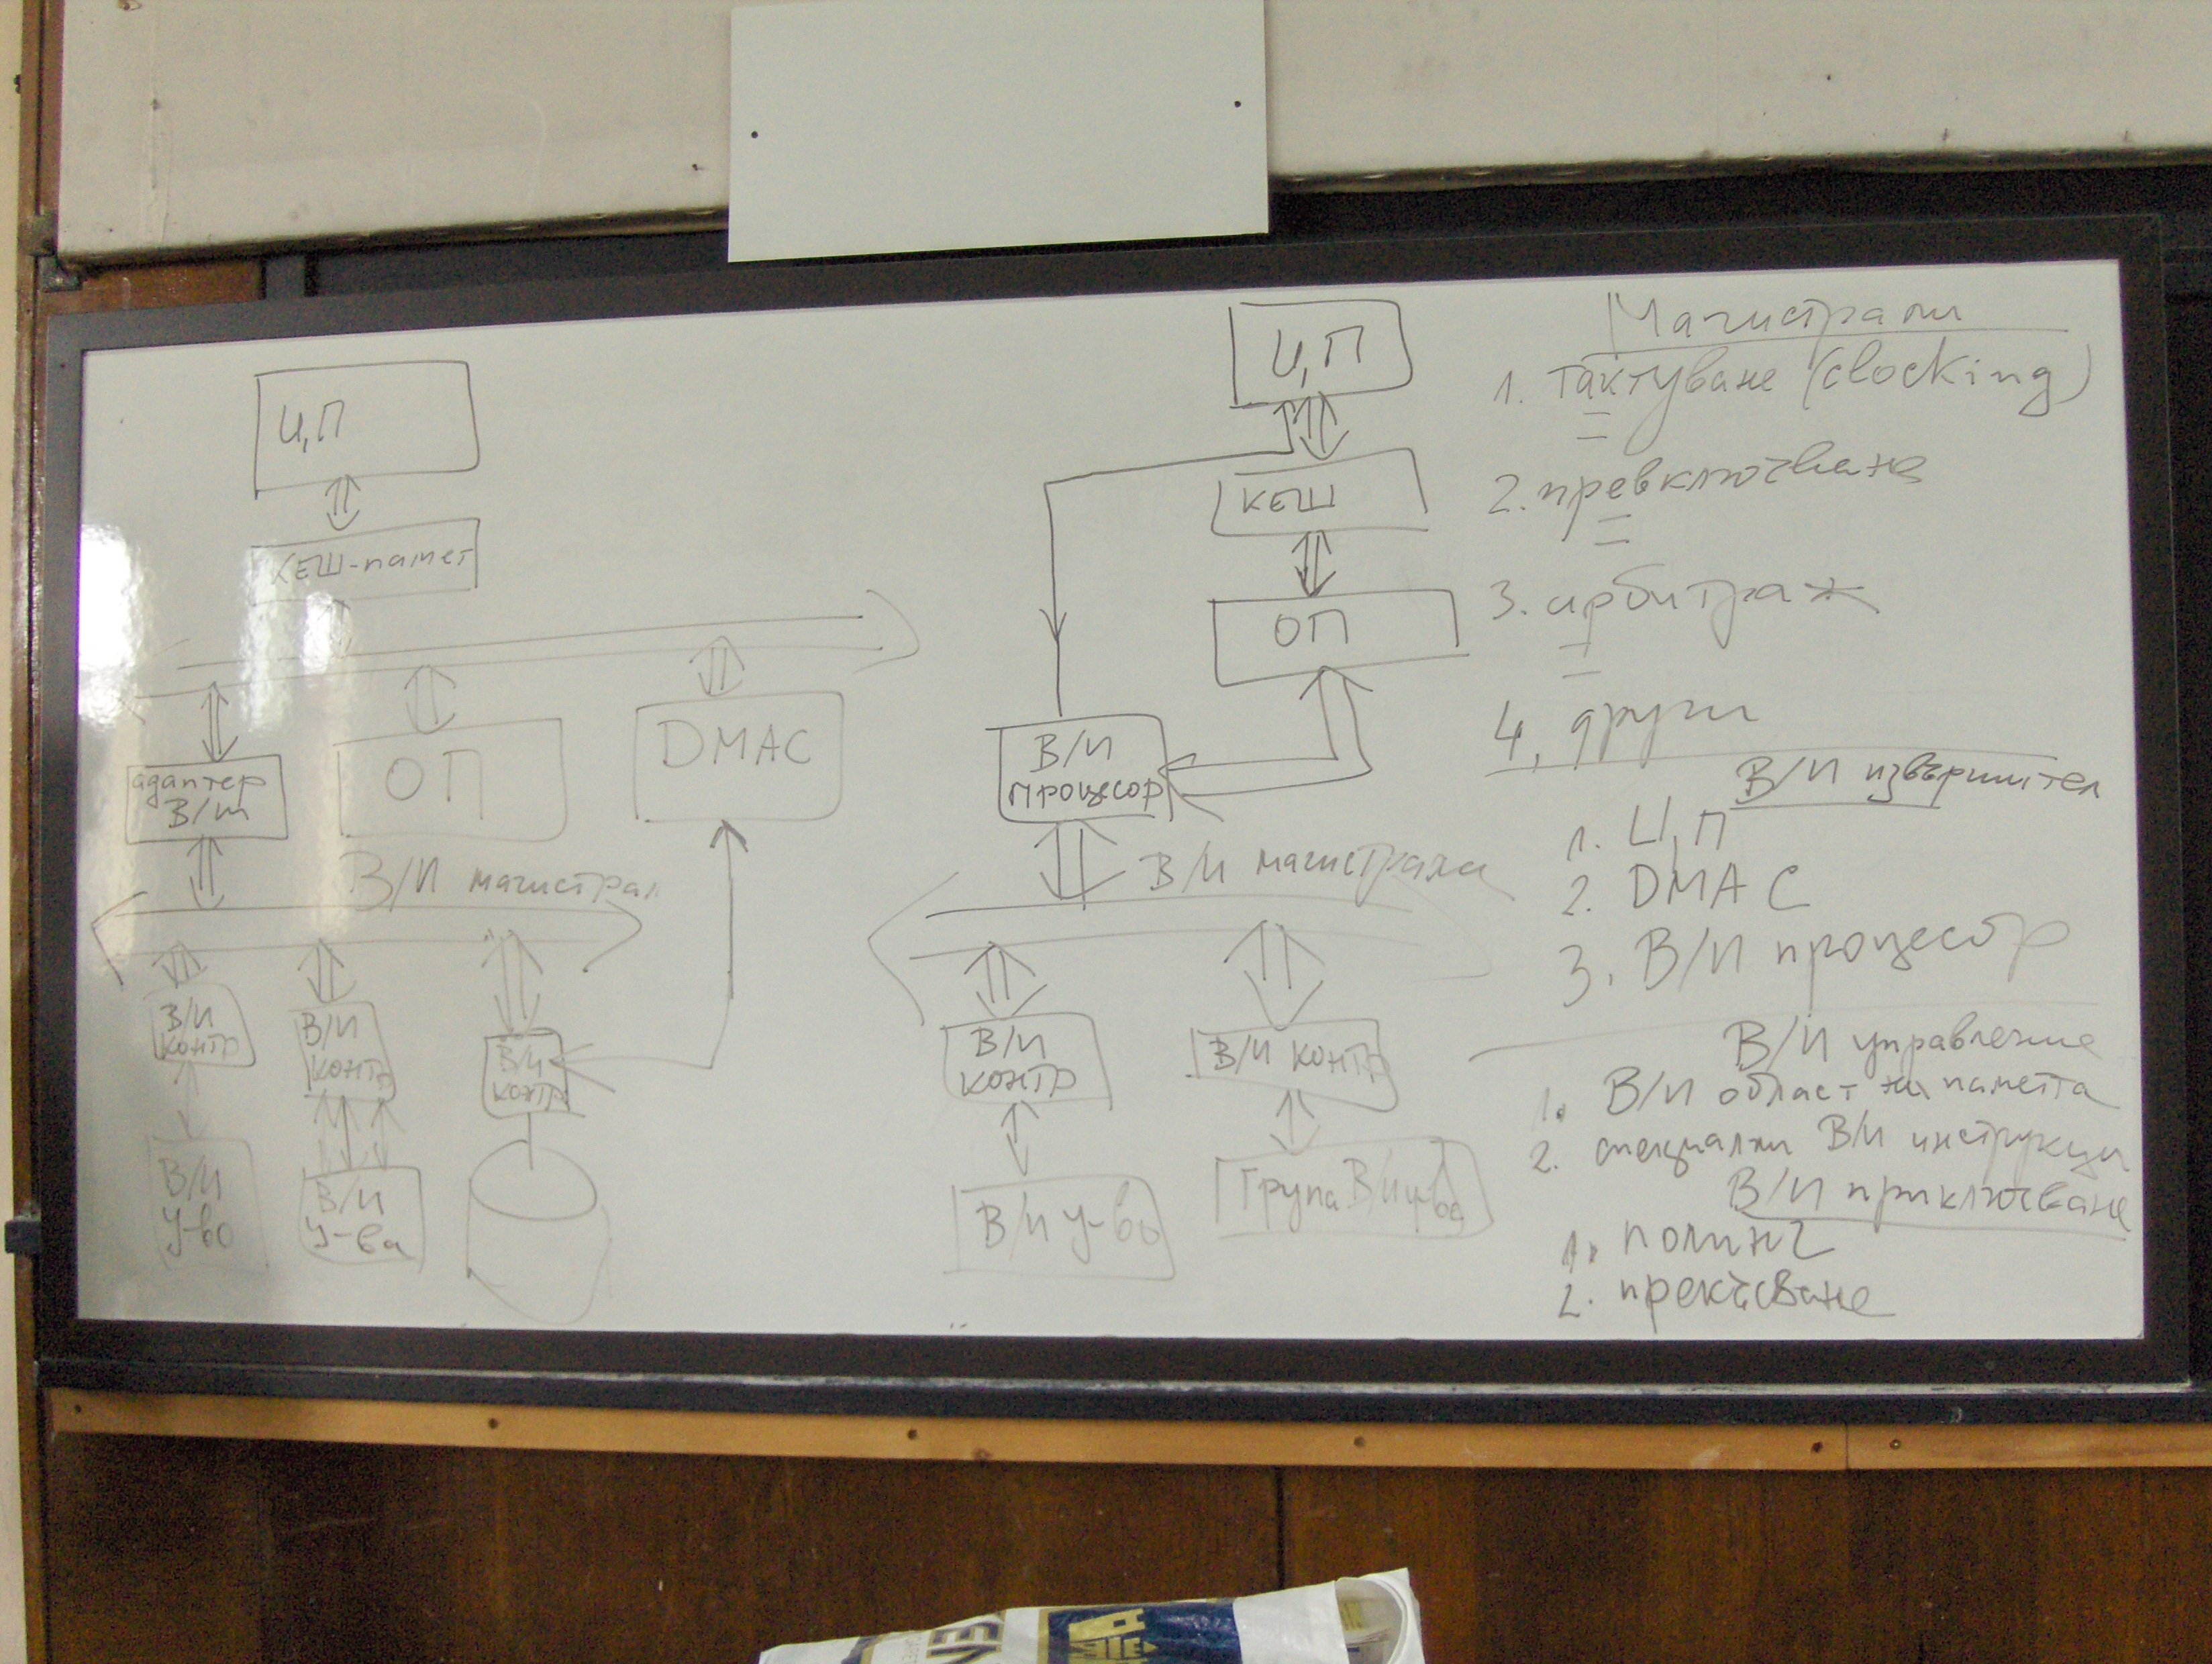 ЦП
КЕШ-памет
адаптер
В/И
ОП
DMAC
В/И магистрал
В/И
контр
В/И
контр
В/И
контр
В/И
У-во
В/И
У-ва
ЦП
КЕШ
ОП
В/И
процесор
В/И магистрала
В/И
контр
В/И контр
В/И У-во
Група В/И у-ва
Магистрали
1. тактуване (clocking)
2. превключване
3. арбитраж
4. други
В/И извършител
1. ЦП
2. DMAC
3. В/И процесор
В/И управление
1. В/И област на паметта
2. специални В/И инструкции
В/И приключване
1. полинг
2. прекъсване